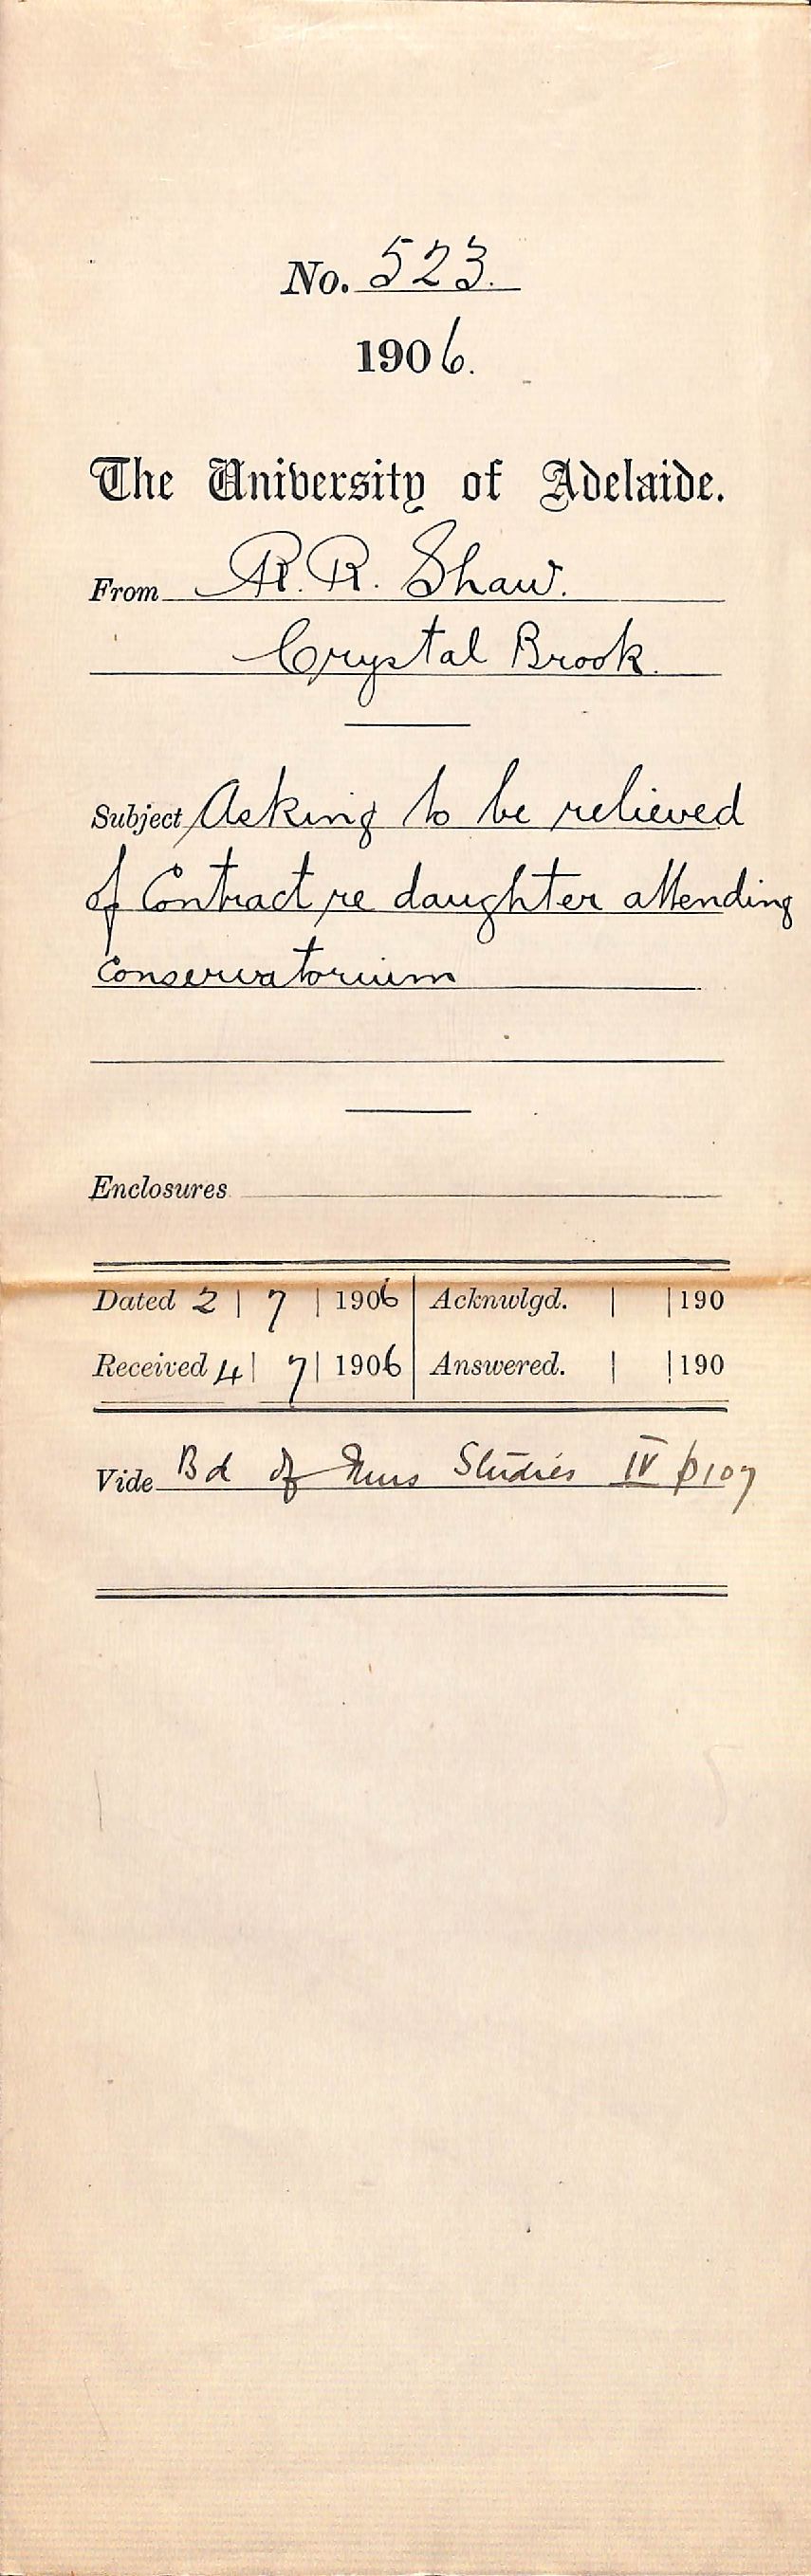 No. 523.
1906.
The University of Adelaide.
From R. R. Shaw.
Crystal Brook.
Subject Asking to be relieved
of Contract re daughter attending
Conservatorium
Enclosures
Dated 2 | 7 | 1906 Acknwlgd. | | 190
Received 4 | 7 | 1906 Answered. | | 190
Vide Bd of Mus Studies IV p107